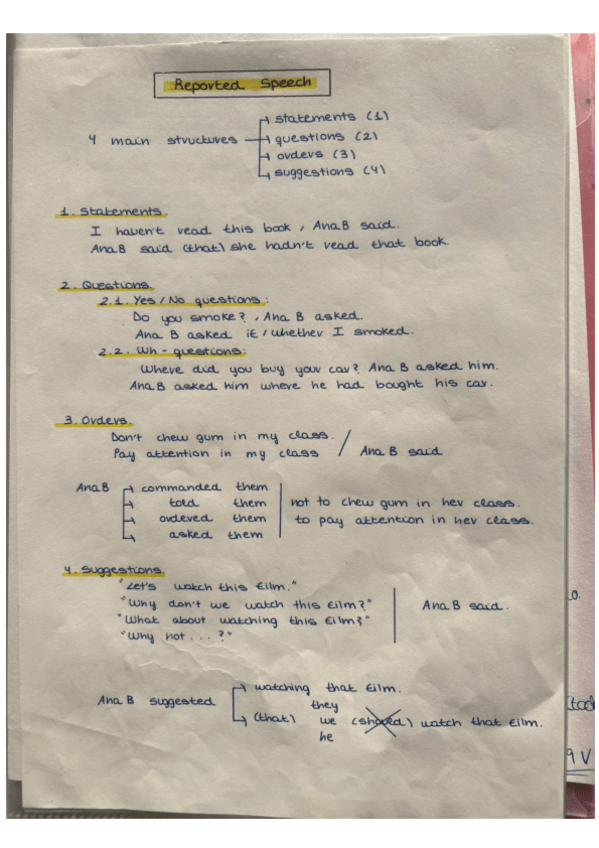 Reported Speech
4 main structures
statements (1)
questions (2)
orders (3)
suggestions (4)
1. Statements.
I haven't read this book, Ana B said.
Ana B said (that) she hadn't read that book.
2. Questions.
2.1. Yes/No questions:
Do you smoke?, Ana B asked.
Ana B asked if/whether I smoked.
2.2. Wh-questions:
Where did you buy your car? Ana B asked him.
Ana B asked him where he had bought his car.
3. Orders.
Don't chew gum in my class.
Pay attention in my class / Ana B said
Ana B
commanded them
told them
ordered them
asked them
not to chew gum in her class.
to pay attention in her class.
4. Suggestions.
"Let's watch this film."
"Why don't we watch this film?"
"What about watching this film?"
"Why not...?"
Ana B said.
Ana B suggested
watching that film.
(that) they we he (should) watch that film.
o.
9 V